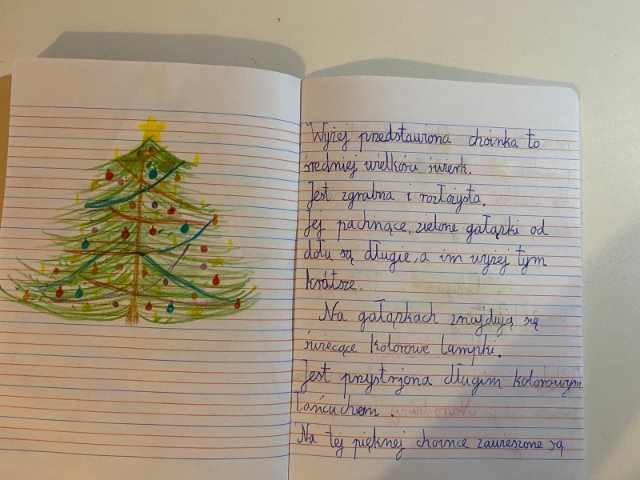 Wyżej przedstawiona choinka to
średniej wielkości świerk.
Jest zgrabna i rozłożysta.
Jej pachnące, zielone gałązki od
dołu są długie, a im wyżej tym
krótsze.
Na gałązkach znajdują się
świecące kolorowe lampki.
Jest przystrojona długim kolorowym
łańcuchem.
Na tej pięknej choince zawieszone są